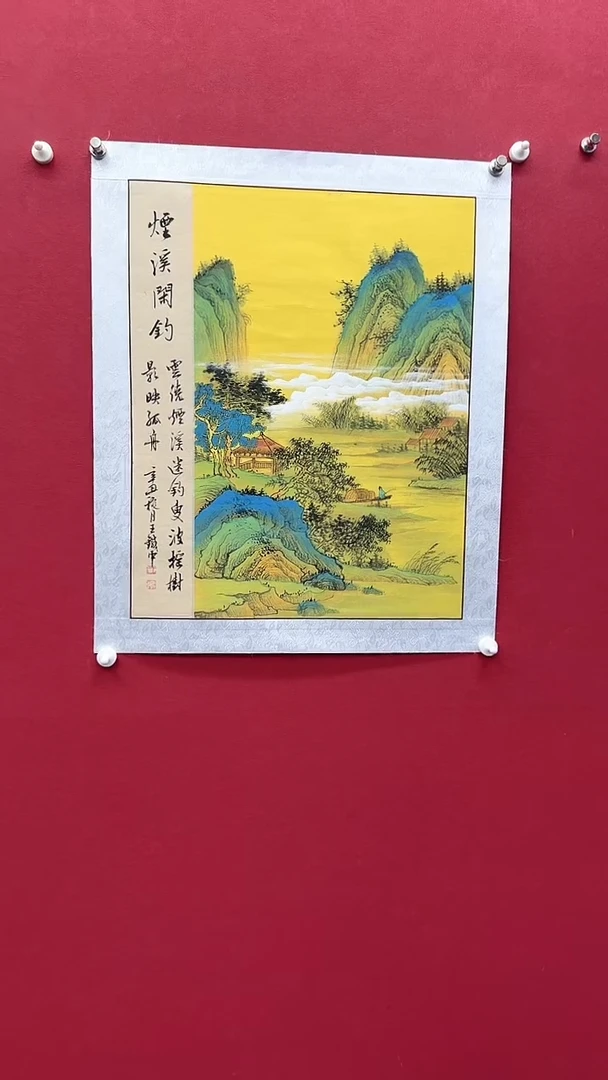 煙溪閑釣
雲繞煙溪迷釣叟波搖樹
影映孤舟
辛丑 月王 中